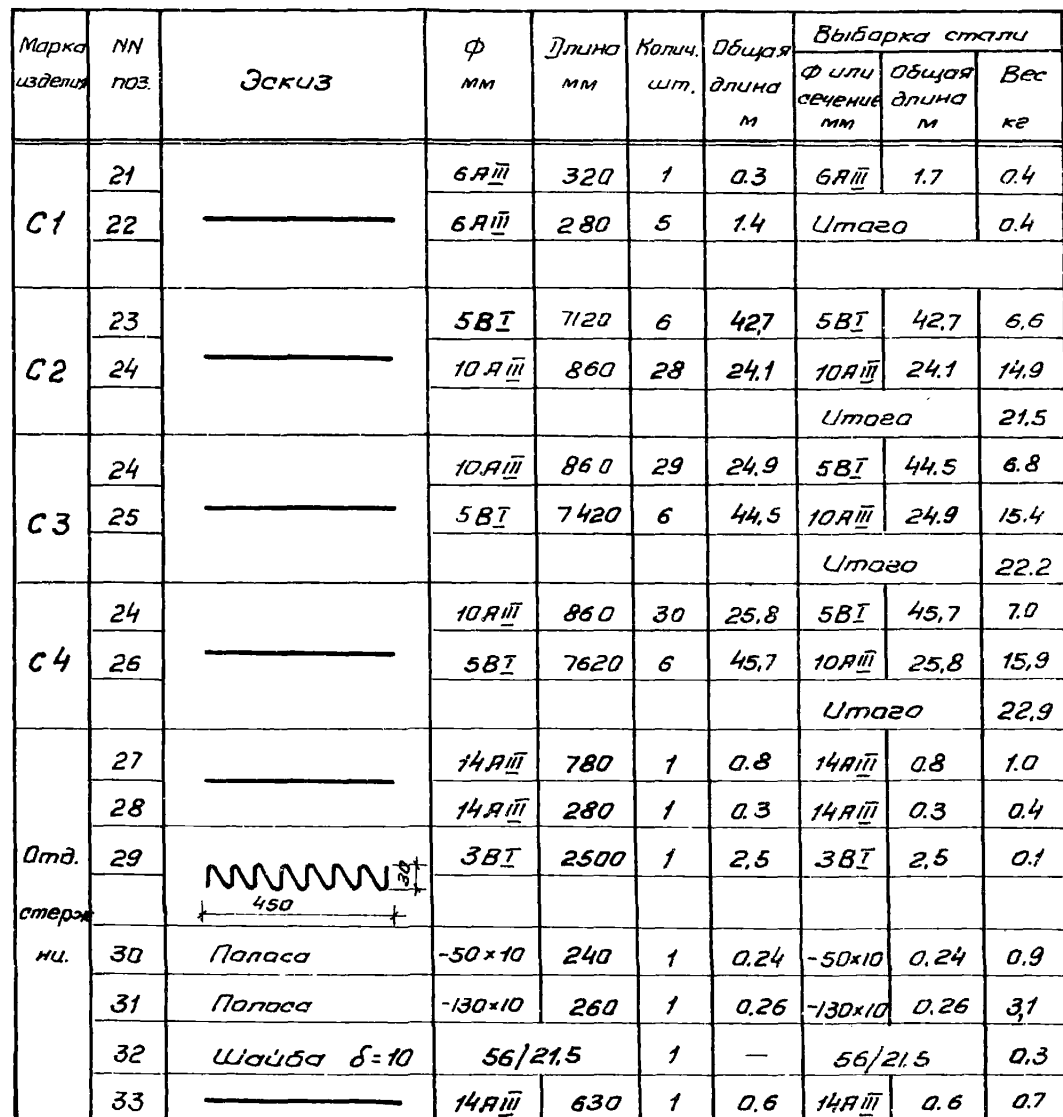 Марка изделия NN поз. Эскиз Ф мм Длина мм Колич. шт. Общая длина м Выборка стали
Ф или сечение мм Общая длина м Вес кг
С1 21 6АIII 320 1 0.3 6АIII 1.7 0.4
22 6АIII 280 5 1.4 Итого 0.4
С2 23 5ВI 7120 6 42,7 5ВI 42,7 6,6
24 10АIII 860 28 24.1 10АIII 24.1 14.9
Итого 21.5
С3 24 10.АIII 860 29 24.9 5ВI 44.5 6.8
25 5ВI 7420 6 44,5 10АIII 24.9 15.4
Итого 22.2
С4 24 10АIII 860 30 25,8 5ВI 45,7 7.0
26 5ВI 7620 6 45,7 10АIII 25,8 15,9
Итого 22,9
Отд. стержни. 27 14АIII 780 1 0.8 14АIII 0.8 1.0
28 14АIII 280 1 0.3 14АIII 0.3 0.4
29 3ВI 2500 1 2,5 3ВI 2,5 0.1
30
450
30 Полоса -50×10 240 1 0.24 -50×10 0.24 0.9
31 Полоса -130×10 260 1 0.26 -130×10 0.26 3,1
32 Шайба δ=10 56/21.5 1 — 56/21.5 0.3
33 14АIII 630 1 0.6 14АIII 0.6 0.7